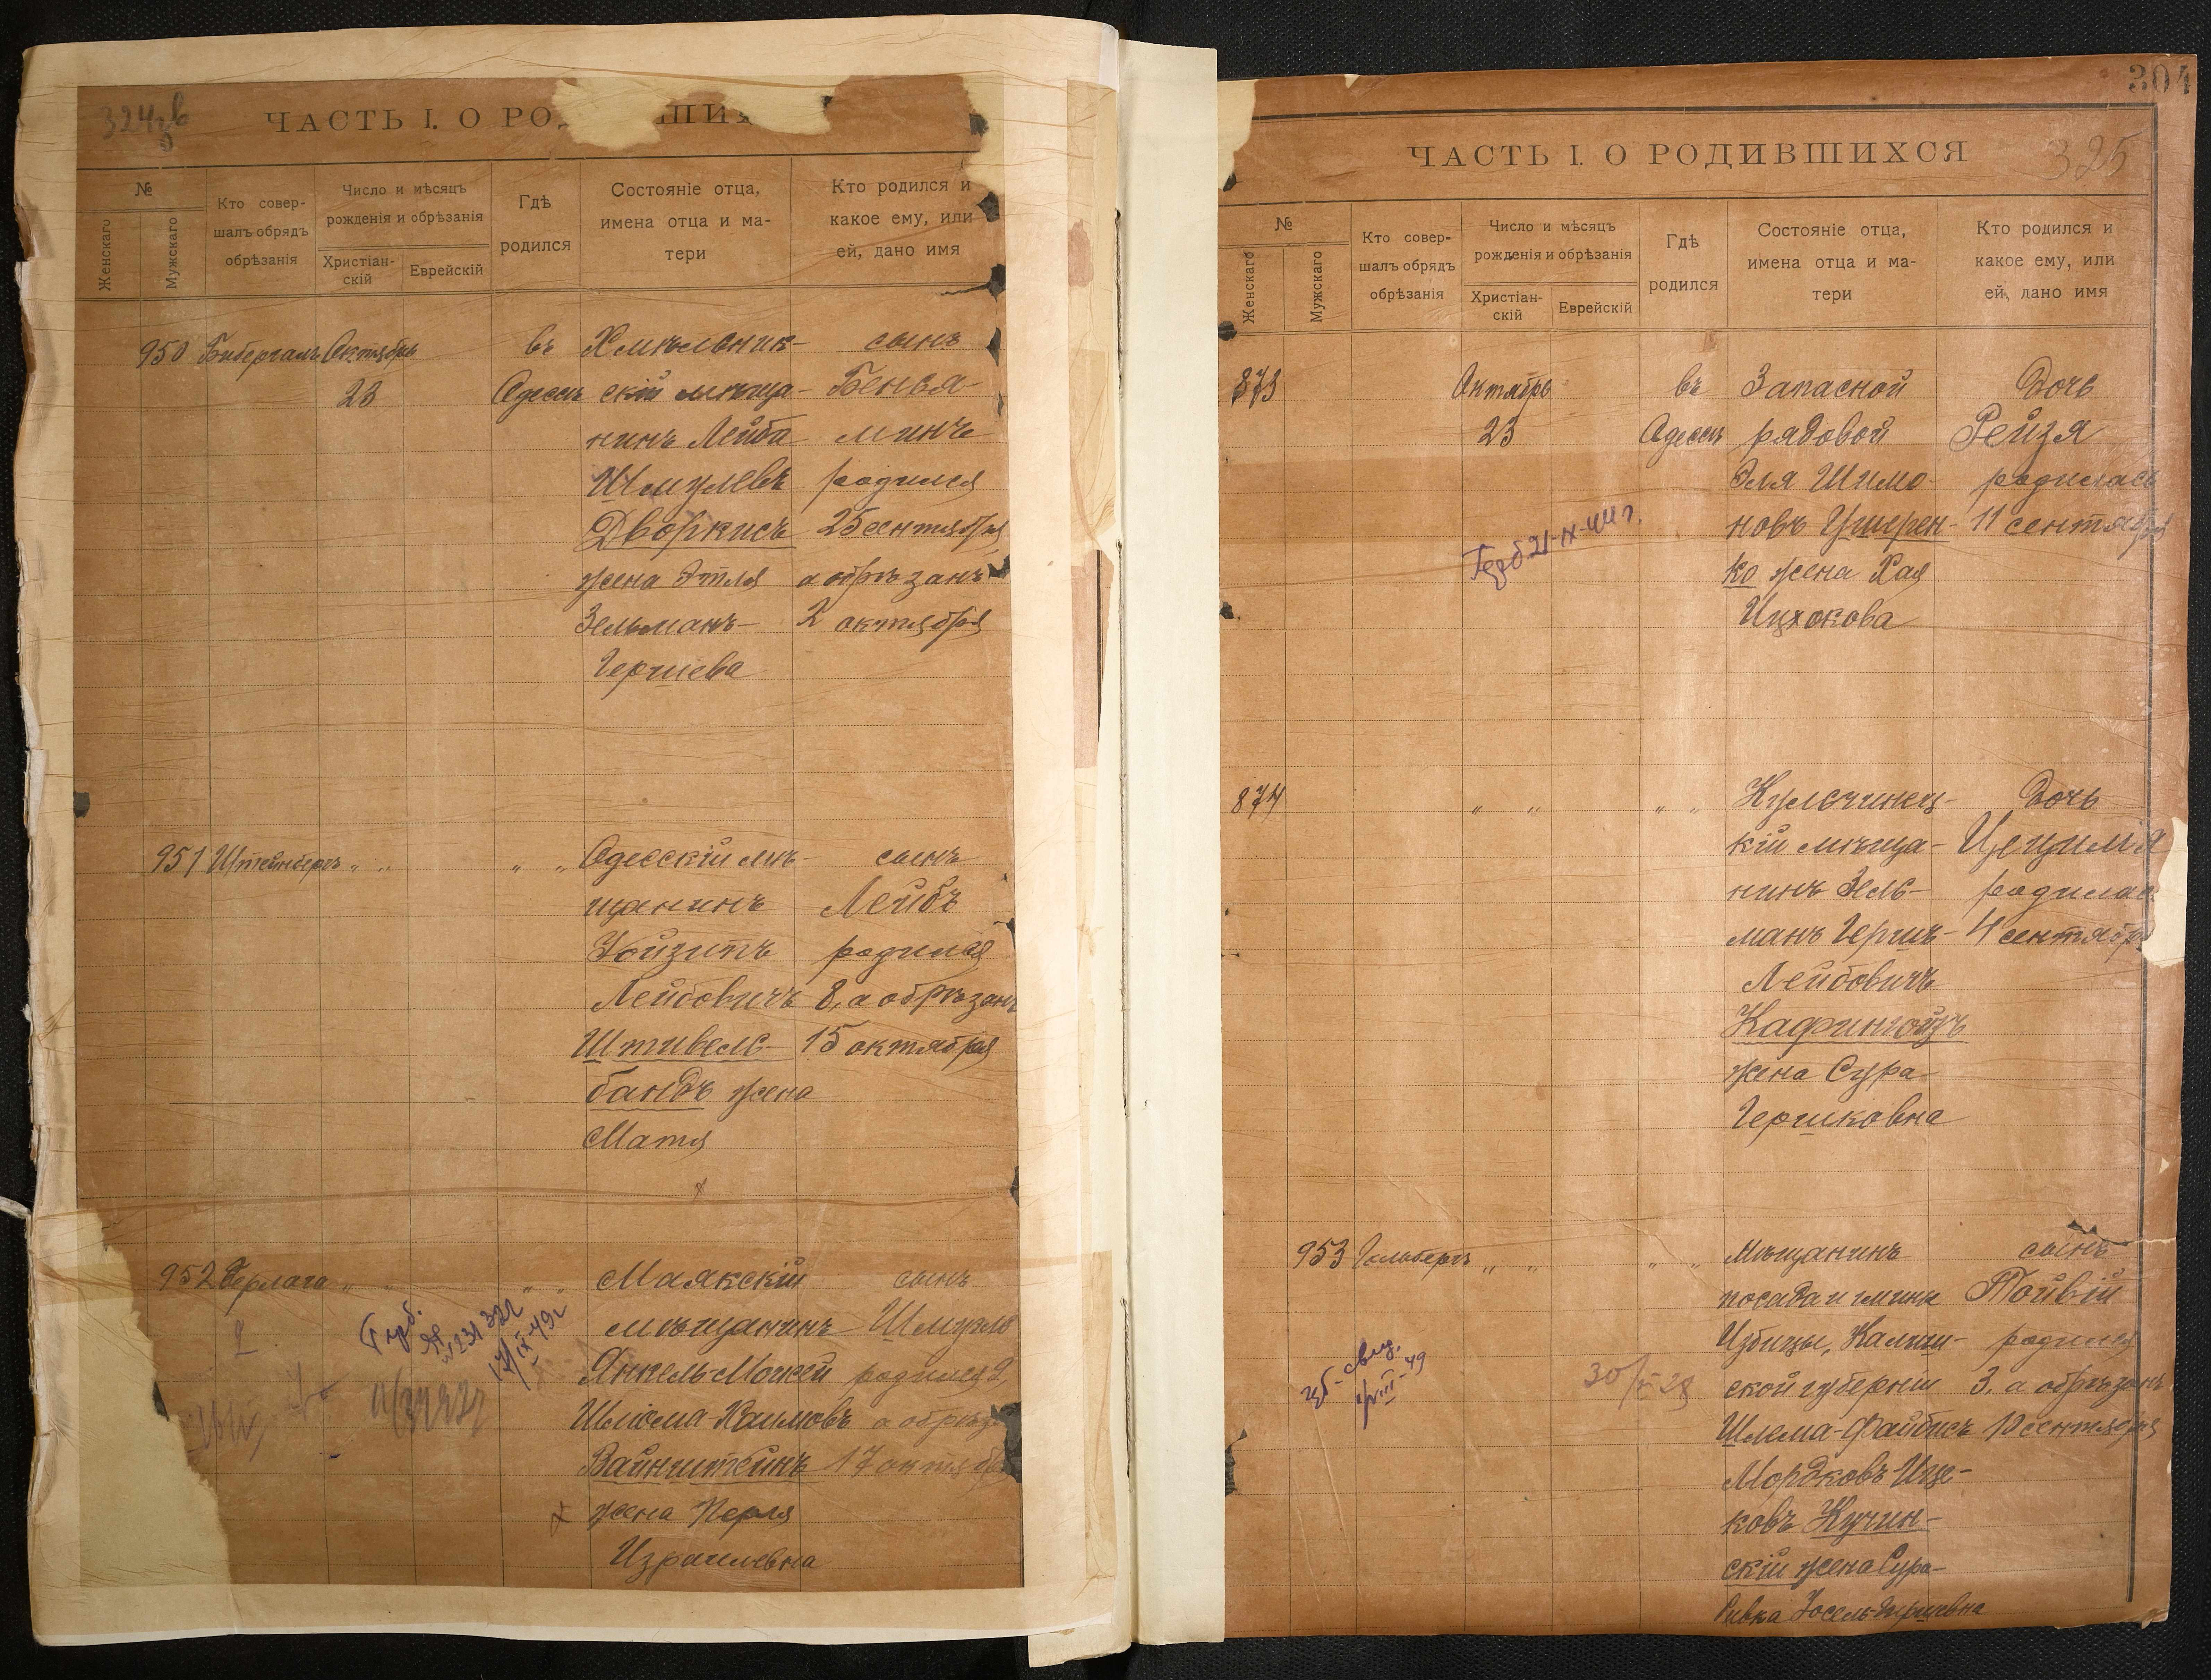 ЧАСТЬ I. О РО
№
Женскаго
Мужскаго
Кто совер-
шалъ обрядъ
обрѣзанія
Число и мѣсяцъ
рожденія и обрѣзанія
Христіан-
скій
Еврейскій
Гдѣ
родился
Состояніе отца,
имена отца и ма-
тери
Кто родился и
какое ему, или
ей, дано имя
950 Бибергалъ Октябрь
23
въ
Одессѣ
Хмѣльник-
скій мѣща-
нинъ Лейба
Шмулевъ
Дворкисъ
жена Этля
Зельманъ-
Гершева
сынъ
Бенья-
минъ
родился
25 сентября
а обрѣзанъ
2 октября
951 Штейнбергъ „ „
„ „
Одесскій мѣ-
щанинъ
Лейбовичъ
Штивель-
бандъ жена
Матя
сынъ
Лейбъ
родился
8, а обрѣзанъ
15 октября
952 Герлага „ „
„ „
Маякскій
мѣщанинъ
Янкель-Мошей
Шлёма-Хаимовъ
Вайнштейнъ
жена Перля
Израилевна
сынъ
Шмуль
родился
а обрѣз
17 октября
304
325
ЧАСТЬ I. О РОДИВШИХСЯ
№
Женскаго
Мужскаго
Кто совер-
шалъ обрядъ
обрѣзанія
Число и мѣсяцъ
рожденія и обрѣзанія
Христіан-
скій
Еврейскій
Гдѣ
родился
Состояніе отца,
имена отца и ма-
тери
Кто родился и
какое ему, или
ей, дано имя
873
Октябрь
23
21-IX-44 г.
въ
Одессѣ
Запасной
рядовой
Эля Шимо-
новъ Ушерен-
ко жена Хая
Ицхокова
Дочь
Рейзя
родилась
11 сентября
874
„ „
„ „
Кульчинец-
кій мѣща-
нинъ Зель-
манъ Гершъ-
Лейбовичъ
Кафингойзъ
жена Сура-
Гершковна
Дочь
Цецилія
родилас
4 сентябр
953 Гольбергъ „ „
„ „
Мѣщанинъ
посада и гмины
Избицы, Калиш-
ской губерніи
Шлема-Файбисъ
Мордковъ-Ице-
ковъ Кучин-
скій жена Сура-
Ривка Іосель-Гершевна
сынъ
Тойвій
родился
3, а обрѣзанъ
10 сентября